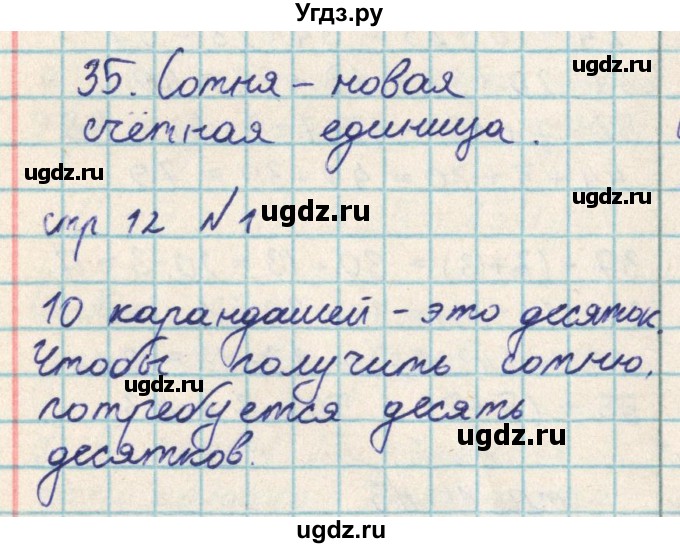 Угдз.ру
35. Сотня – новая
счётная единица.
стр 12 №1
10 карандашей – это десяток.
Чтобы получить сотню,
потребуется десять
десятков.
ugdz.ru
ugdz.ru
ugdz.ru
ugdz.ru
ugdz.ru
ugdz.ru
ugdz.ru
ugdz.ru
ugdz.ru
ugdz.ru